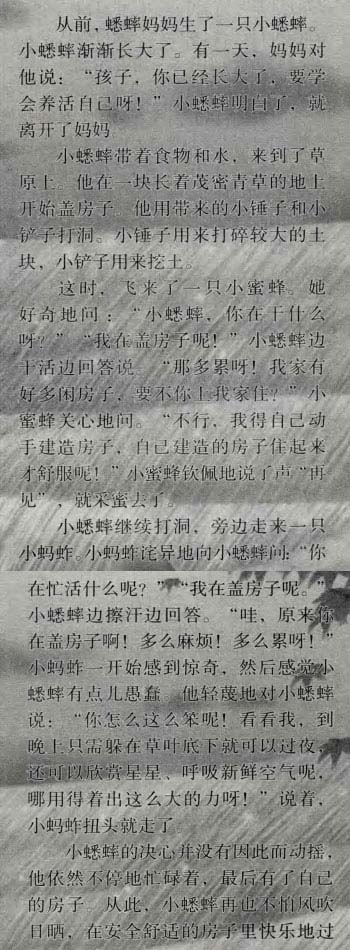 从前，蟋蟀妈妈生了一只小蟋蟀。
小蟋蟀渐渐长大了。有一天，妈妈对
他说：“孩子，你已经长大了，要学
会养活自己呀！”小蟋蟀明白了，就
离开了妈妈
小蟋蟀带着食物和水，来到了草
原上。他在一块长着茂密青草的地上
开始盖房子。他用带来的小锤子和小
铲子打洞。小锤子用来打碎较大的土
块，小铲子用来挖土。
这时，飞来了一只小蜜蜂。她
好奇地问：“小蟋蟀，你在干什么
呀？”“我在盖房子呢！”小蟋蟀边
干活边回答说　“那多累呀！我家有
好多闲房子，要不你上我家住？”小
蜜蜂关心地问。“不行，我得自己动
手建造房子，自己建造的房子住起来
才舒服呢！”小蜜蜂钦佩地说了声“再
见”，就采蜜去了。
小蟋蟀继续打洞，旁边走来一只
小蚂蚱。小蚂蚱诧异地向小蟋蟀问：“你
在忙活什么呢？”“我在盖房子呢。”
小蟋蟀边擦汗边回答。“哇，原来你
在盖房子啊！多么麻烦！多么累呀！”
小蚂蚱一开始感到惊奇，然后感觉小
蟋蟀有点儿愚蠢　他轻蔑地对小蟋蟀
说：“你怎么这么笨呢！看看我，到
晚上只需躲在草叶底下就可以过夜，
还可以欣赏星星、呼吸新鲜空气呢，
哪用得着出这么大的力呀！”说着，
小蚂蚱扭头就走了。
小蟋蟀的决心并没有因此而动摇，
他依然不停地忙碌着，最后有了自己
的房子。从此，小蟋蟀再也不怕风吹
日晒，在安全舒适的房子里快乐地过